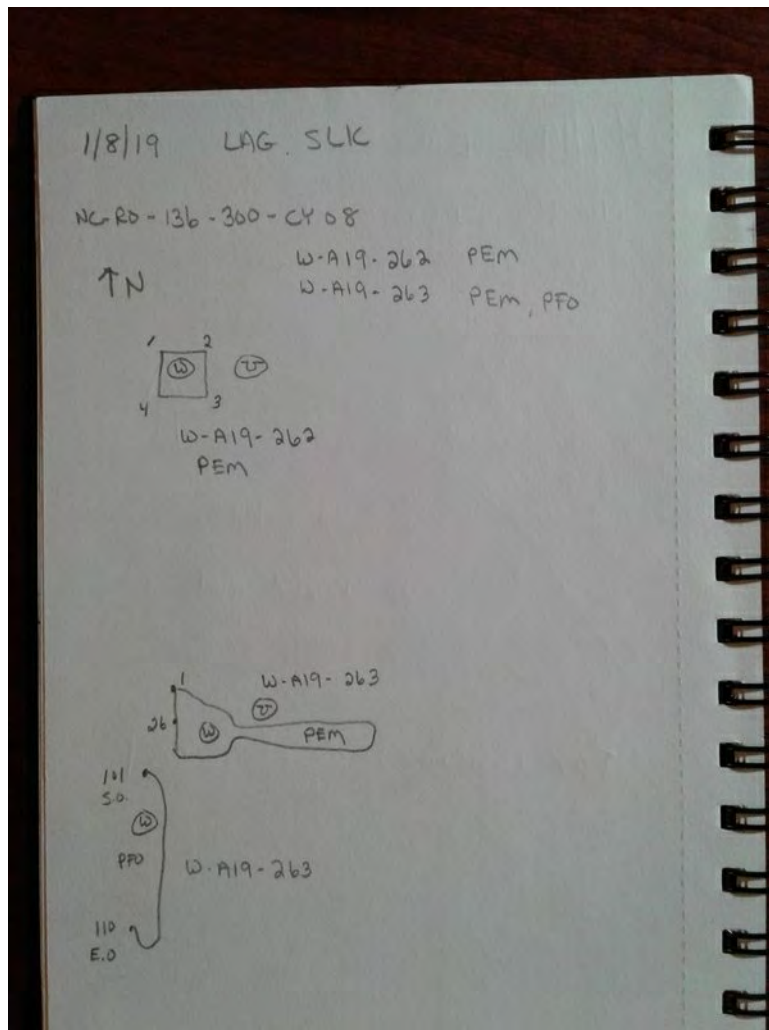 1/8/19 LAG. SLK
NC-RO-136-300-CY08
W-A19-262 PEM
↑N
W-A19-263 PEM, PFO
1 2
W U
4 3
W-A19-262
PEM
1 W-A19-263
U
26 W PEM
101
S.O.
W
PFO W-A19-263
110
E.O